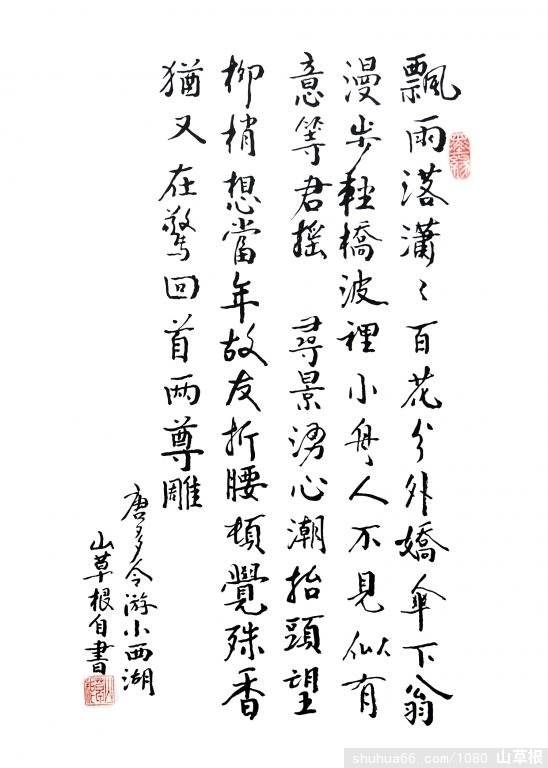 飄雨落瀟〻百花分外嬌傘下翁
漫步輕橋波裡小舟人不見似有
意等君摇 尋景湧心潮抬頭望
柳梢想當年故友折腰頓覺殊香
猶又在驚回首两尊雕
唐多令游小西湖
山草根自書
shuhua66.com/1080 山草根